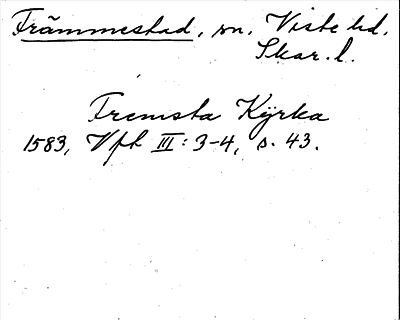 Främmestad, sn. Viste hd.
Skar. l.
Fremsta Kÿrka
1583, Vfh III: 3-4, s. 43.